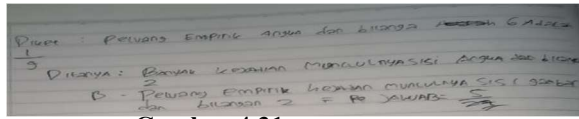 Diket : Peluang Empirik Angka dan bilanga 6 Adalah
1
9
Ditanya : Banyak kejadian munculnya sisi Angka dan bilang
2
B - Peluang Empirik kejadian munculnya sisi gambar
dan bilangan 2 = JAWAB = 5
Gambar 4.21